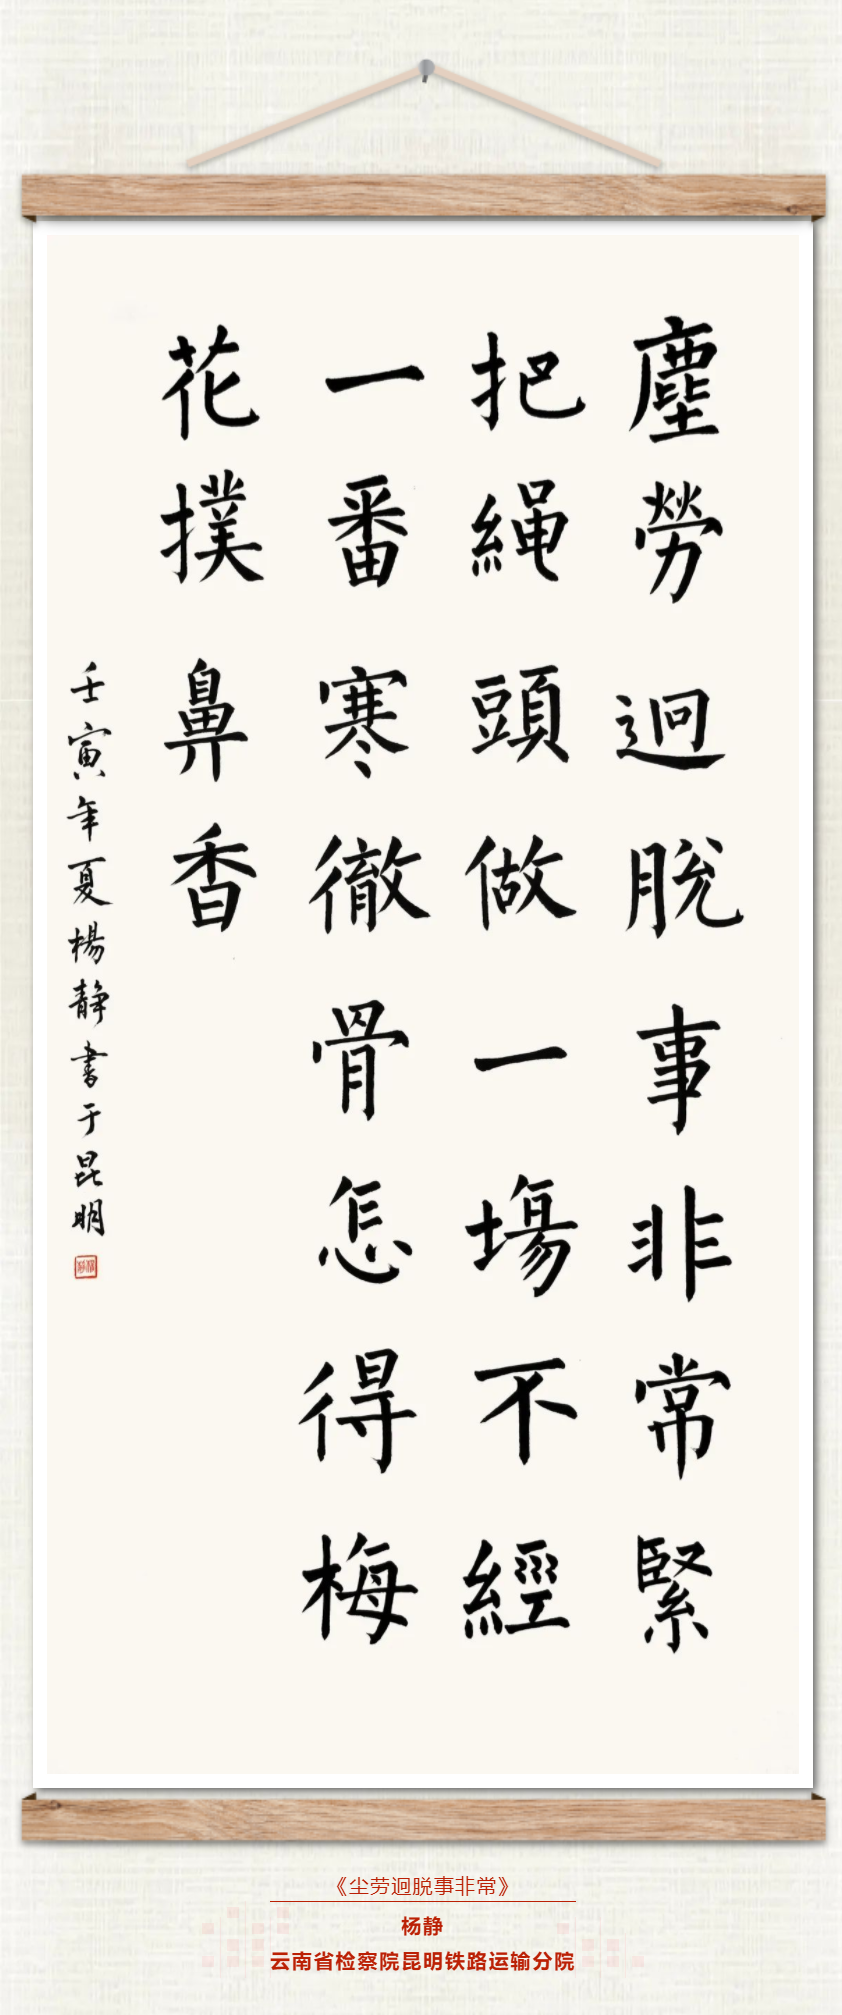 塵勞迥脫事非常緊
把繩頭做一場不經
一番寒徹骨怎得梅
花撲鼻香
壬寅年夏楊靜书于昆明
《尘劳迥脱事非常》
杨静
云南省检察院昆明铁路运输分院